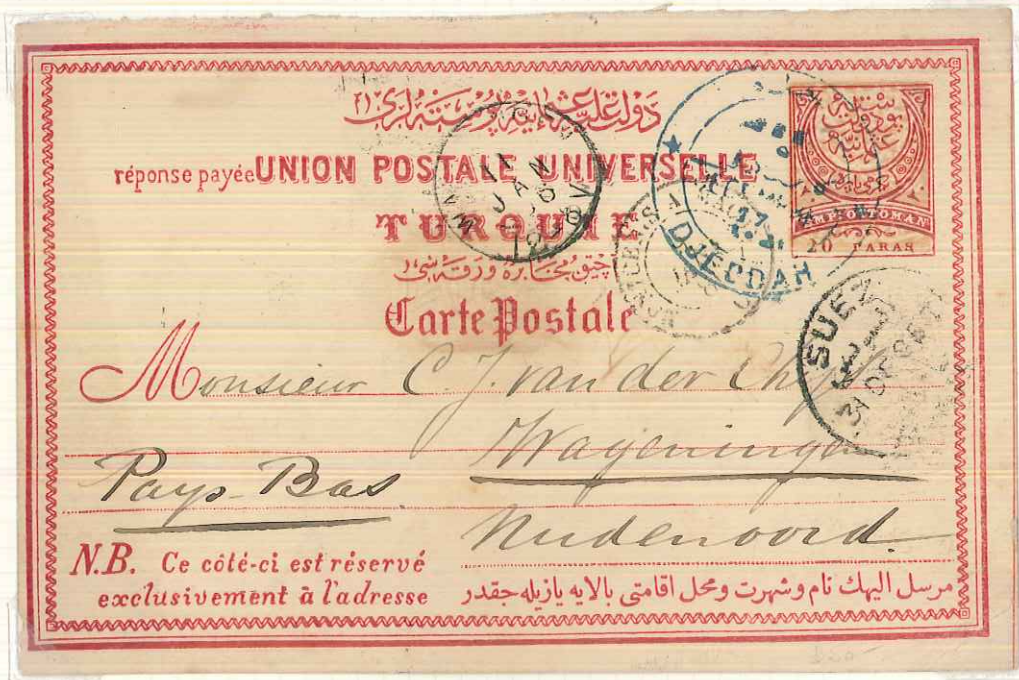 دولت علیه عثمانیه پوسته لری
réponse payée UNION POSTALE UNIVERSELLE
TURQUIE
چفت مخابره ورقه سی
Carte Postale
EMP: OTTOMAN
20 PARAS
DJEDDAH
17
SUEZ
31 DE
WAGENINGEN
11
JAN
86
Monsieur C. J. van der
Wageningen
Pays-Bas
Nudenoord.
N.B. Ce côté-ci est réservé
exclusivement à l'adresse
مرسل الیهك نام وشهرت ومحل اقامتی بالایه یازیله جقدر